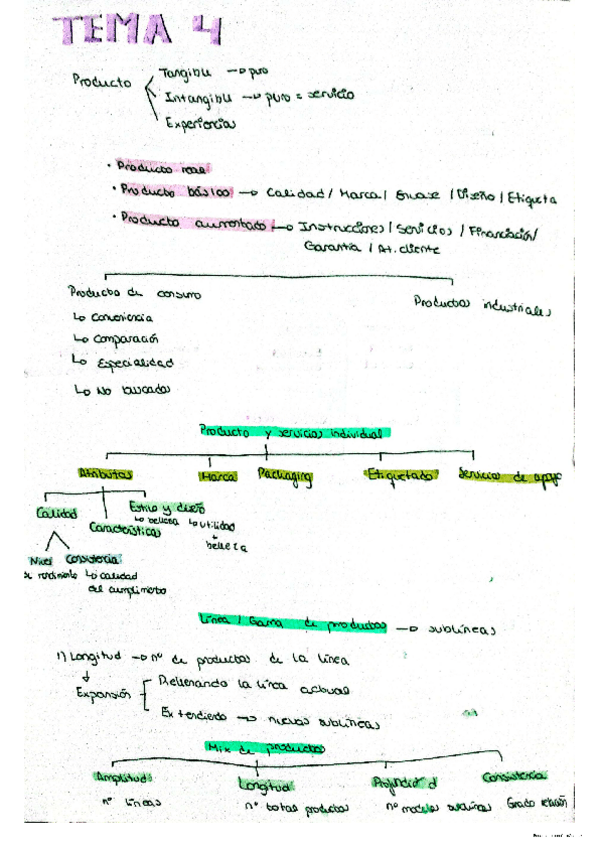 TEMA 4
Producto
Tangible → puro
Intangible → puro = servicio
Experiencias
· Producto real
· Producto básico → Calidad / Marca / Envase / Diseño / Etiqueta
· Producto aumentado → Instrucciones / Servicios / Financiación /
Garantía / At. cliente
Productos de consumo
Productos industriales
↳ Conveniencia
↳ Comparación
↳ Especialidad
↳ No buscados
Producto y servicios individual
Atributos
Marca
Packaging
Etiquetado
Servicios de apoyo
Calidad
Características
Estilo y diseño
↳ belleza ↳ utilidad
+
belleza
Nivel
Consistencia
de rendimiento ↳ calidad
del cumplimento
Línea / Gama de productos → sublíneas
1) Longitud → nº de productos de la línea
↓
Expansión
Rellenando la línea actual
Extendiendo → nuevas sublíneas
Mix de productos
Amplitud
Longitud
Profundidad
Consistencia
nº líneas
nº total productos
nº modelos sublíneas
Grado relación